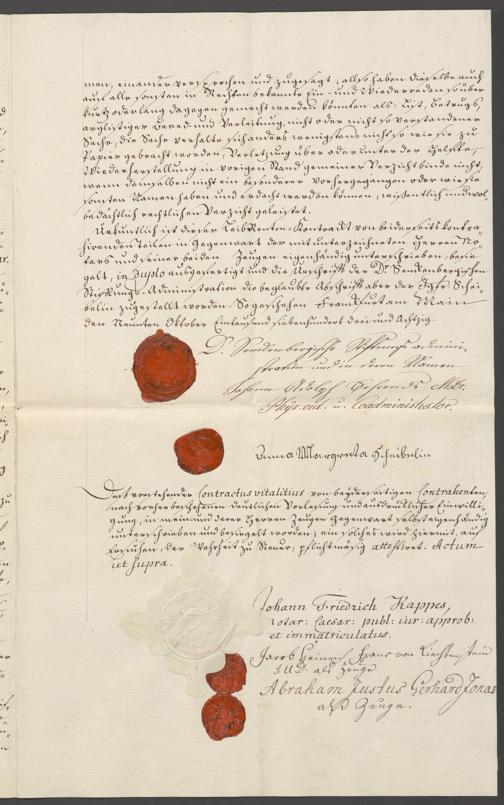 man, einander versprochen und zugesagt; also haben dieselbe auch
auf alle sonsten in Rechten bekannte Ein- und Wiederreden so über
kurtz oder lang dagegen gemacht werden könnten als: List, Betrugs,
arglistiger Bered und Verleitung, nicht oder nicht so verstandener
Sache, die Sache verhalte sich anders wenigstens nicht so wie sie zu
Papier gebracht worden, Verletzung über oder unter der Helfte,
Wiederherstellung in vorigen Stand gemeiner Verzicht binde nicht,
wenn demselben nicht ein besonderer vorhergegangen oder wie sie
sonsten Namen haben und erdacht werden können, wissentlich und wol-
bedächtlich rechtlichen Verzicht geleistet.
Urkundlich ist dieser Leib Renten-Kontrackt von beiderseits kontra-
hirenden Teilen in Gegenwart der mitunterzeichneten Herren No-
tars und seiner beiden Zeugen eigenhändig unterschrieben, besie-
gelt, in duplo ausgefertigt und die Urschrift der Dr. Senckenbergischen
Stiftungs-Administration die beglaubte Abschrift aber der Jgfr. Schei-
belin zugestellt worden. So geschehen Franckfurt am Main
den Neunten Oktober Eintausend siebenhundert drei und Achtzig.
D. Senckenbergische Stiftungs admini-
stration und in deren Namen
Johann Adolph Behrends Med. Dr.
Phys. ord. u. Coadministrator.
Anna Margreta Scheibelin
Dass vorstehender Contractus vitalitius von beyderseitigen Contrahenten,
nach vorher beschehener deutlichen Vorlesung und ausdrücklicher Einwilli-
gung, in mein und derer Herren Zeugen Gegenwart selbst eigenhändig
unterschrieben und besiegelt worden; ein solches wird hiermit, auf
Ersuchen, der Wahrheit zu Steuer, pflichtmäsig attestiret. Actum
ut supra.
Johann Friedrich Kappes,
Notar: Caesar: publ: iur: approb:
et immatriculatus.
Jacob Heinrich Franc von Liechtenstein
J.U.D. als Zeuge
Abraham Justus Gerhard Jonas
als Zeuge.